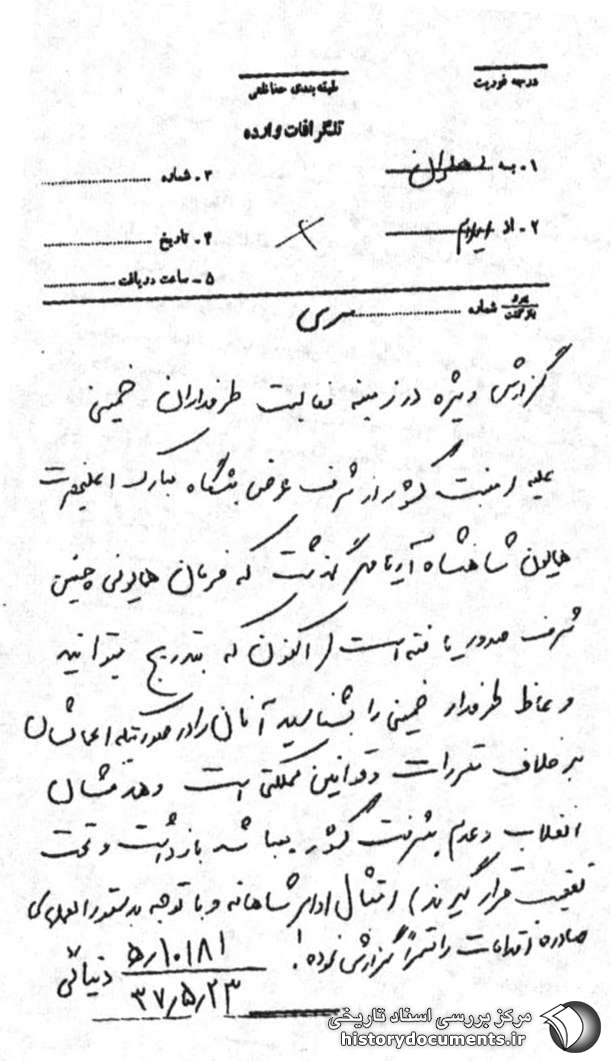 درجه فوریت
طبقه‌بندی حفاظتی
تلگرافات وارده
۱ - به
۳ - شماره
۲ - از
۴ - تاریخ
۵ - ساعت دریافت
عطف
بازگشت
شماره
سری
گزارش ویژه در زمینه فعالیت طرفداران خمینی
علیه امنیت کشور از شرف عرض پیشگاه مبارک اعلیحضرت
همایون شاهنشاه آریامهر گذشت که فرمان همایونی چنین
شرف صدور یافته است (اکنون که بتدریج میتوانید
وعاظ طرفدار خمینی را بشناسید آنان را در صورتیکه اعمالشان
بر خلاف مقررات و قوانین مملکتی است و هدفشان
انقلاب و عدم پیشرفت کشور میباشد بازداشت و تحت
تعقیب قرار گیرند) امتثال اوامر شاهانه و با توجه بدستورالعملهای
صادره اقدامات را گزارش نموده!
۵/۱۰۱۸۱
۳۷/۵/۲۳
مرکز بررسی اسناد تاریخی
historydocuments.ir